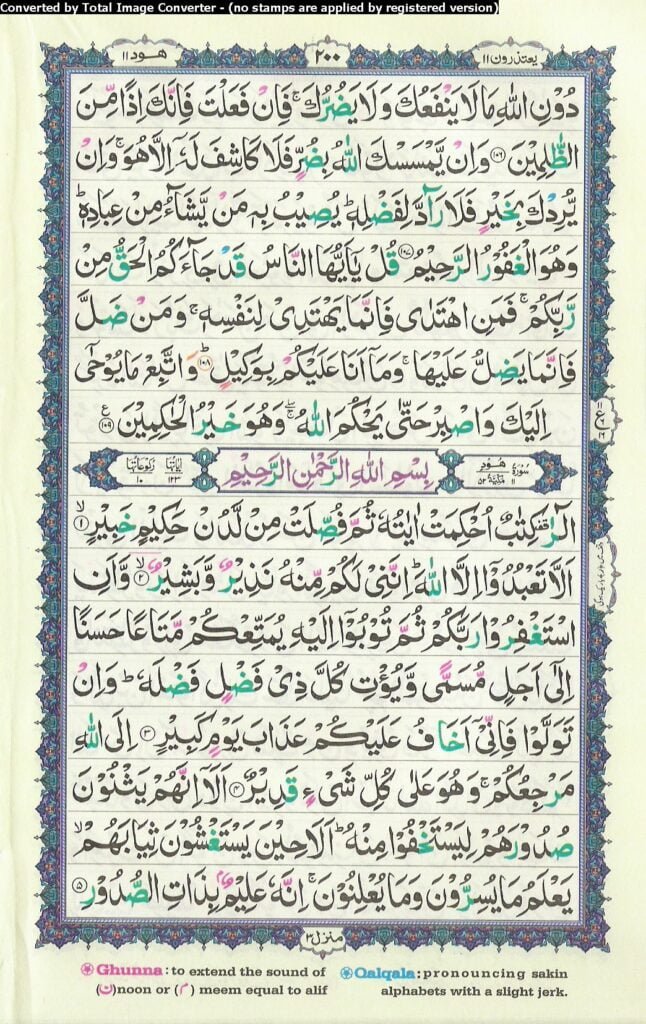 Converted by Total Image Converter - (no stamps are applied by registered version)
يعتذرون ١١
٢٠٠
هود ١١
دُوْنِ اللّٰهِ مَا لَا يَنْفَعُكَ وَلَا يَضُرُّكَ ۚ فَاِنْ فَعَلْتَ فَاِنَّكَ اِذًا مِّنَ
الظّٰلِمِيْنَ ﴿١٠٦﴾ وَاِنْ يَّمْسَسْكَ اللّٰهُ بِضُرٍّ فَلَا كَاشِفَ لَهٗٓ اِلَّا هُوَ ۚ وَاِنْ
يُّرِدْكَ بِخَيْرٍ فَلَا رَآدَّ لِفَضْلِهٖ ؕ يُصِيْبُ بِهٖ مَنْ يَّشَآءُ مِنْ عِبَادِهٖ ؕ
وَهُوَ الْغَفُوْرُ الرَّحِيْمُ ﴿١٠٧﴾ قُلْ يٰٓاَيُّهَا النَّاسُ قَدْ جَآءَكُمُ الْحَقُّ مِنْ
رَّبِّكُمْ ۚ فَمَنِ اهْتَدٰى فَاِنَّمَا يَهْتَدِيْ لِنَفْسِهٖ ۚ وَمَنْ ضَلَّ
فَاِنَّمَا يَضِلُّ عَلَيْهَا ۚ وَمَآ اَنَا عَلَيْكُمْ بِوَكِيْلٍ ؕ ﴿١٠٨﴾ وَاتَّبِعْ مَا يُوْحٰٓى
اِلَيْكَ وَاصْبِرْ حَتّٰى يَحْكُمَ اللّٰهُ ۚ وَهُوَ خَيْرُ الْحٰكِمِيْنَ ﴿١٠٩﴾ ع
سُوْرَةُ هُوْدٍ مَكِّيَّةٌ ١١ ٥٢
بِسْمِ اللّٰهِ الرَّحْمٰنِ الرَّحِيْمِ
اٰيَاتُهَا ١٢٣ رُكُوْعَاتُهَا ١٠
الٓرٰ ۫ كِتٰبٌ اُحْكِمَتْ اٰيٰتُهٗ ثُمَّ فُصِّلَتْ مِنْ لَّدُنْ حَكِيْمٍ خَبِيْرٍ ۙ ﴿١﴾
اَلَّا تَعْبُدُوْٓا اِلَّا اللّٰهَ ؕ اِنَّنِيْ لَكُمْ مِّنْهُ نَذِيْرٌ وَّبَشِيْرٌ ۙ ﴿٢﴾ وَّاَنِ
اسْتَغْفِرُوْا رَبَّكُمْ ثُمَّ تُوْبُوْٓا اِلَيْهِ يُمَتِّعْكُمْ مَّتَاعًا حَسَنًا
اِلٰٓى اَجَلٍ مُّسَمًّى وَّيُؤْتِ كُلَّ ذِيْ فَضْلٍ فَضْلَهٗ ؕ وَاِنْ
تَوَلَّوْا فَاِنِّيْٓ اَخَافُ عَلَيْكُمْ عَذَابَ يَوْمٍ كَبِيْرٍ ﴿٣﴾ اِلَى اللّٰهِ
مَرْجِعُكُمْ ۚ وَهُوَ عَلٰى كُلِّ شَيْءٍ قَدِيْرٌ ﴿٤﴾ اَلَآ اِنَّهُمْ يَثْنُوْنَ
صُدُوْرَهُمْ لِيَسْتَخْفُوْا مِنْهُ ؕ اَلَا حِيْنَ يَسْتَغْشُوْنَ ثِيَابَهُمْ ۙ
يَعْلَمُ مَا يُسِرُّوْنَ وَمَا يُعْلِنُوْنَ ۚ اِنَّهٗ عَلِيْمٌۢ بِذَاتِ الصُّدُوْرِ ﴿٥﴾
منزل ٣
Ghunna: to extend the sound of
(ن)noon or (م) meem equal to alif
Qalqala: pronouncing sakin
alphabets with a slight jerk.